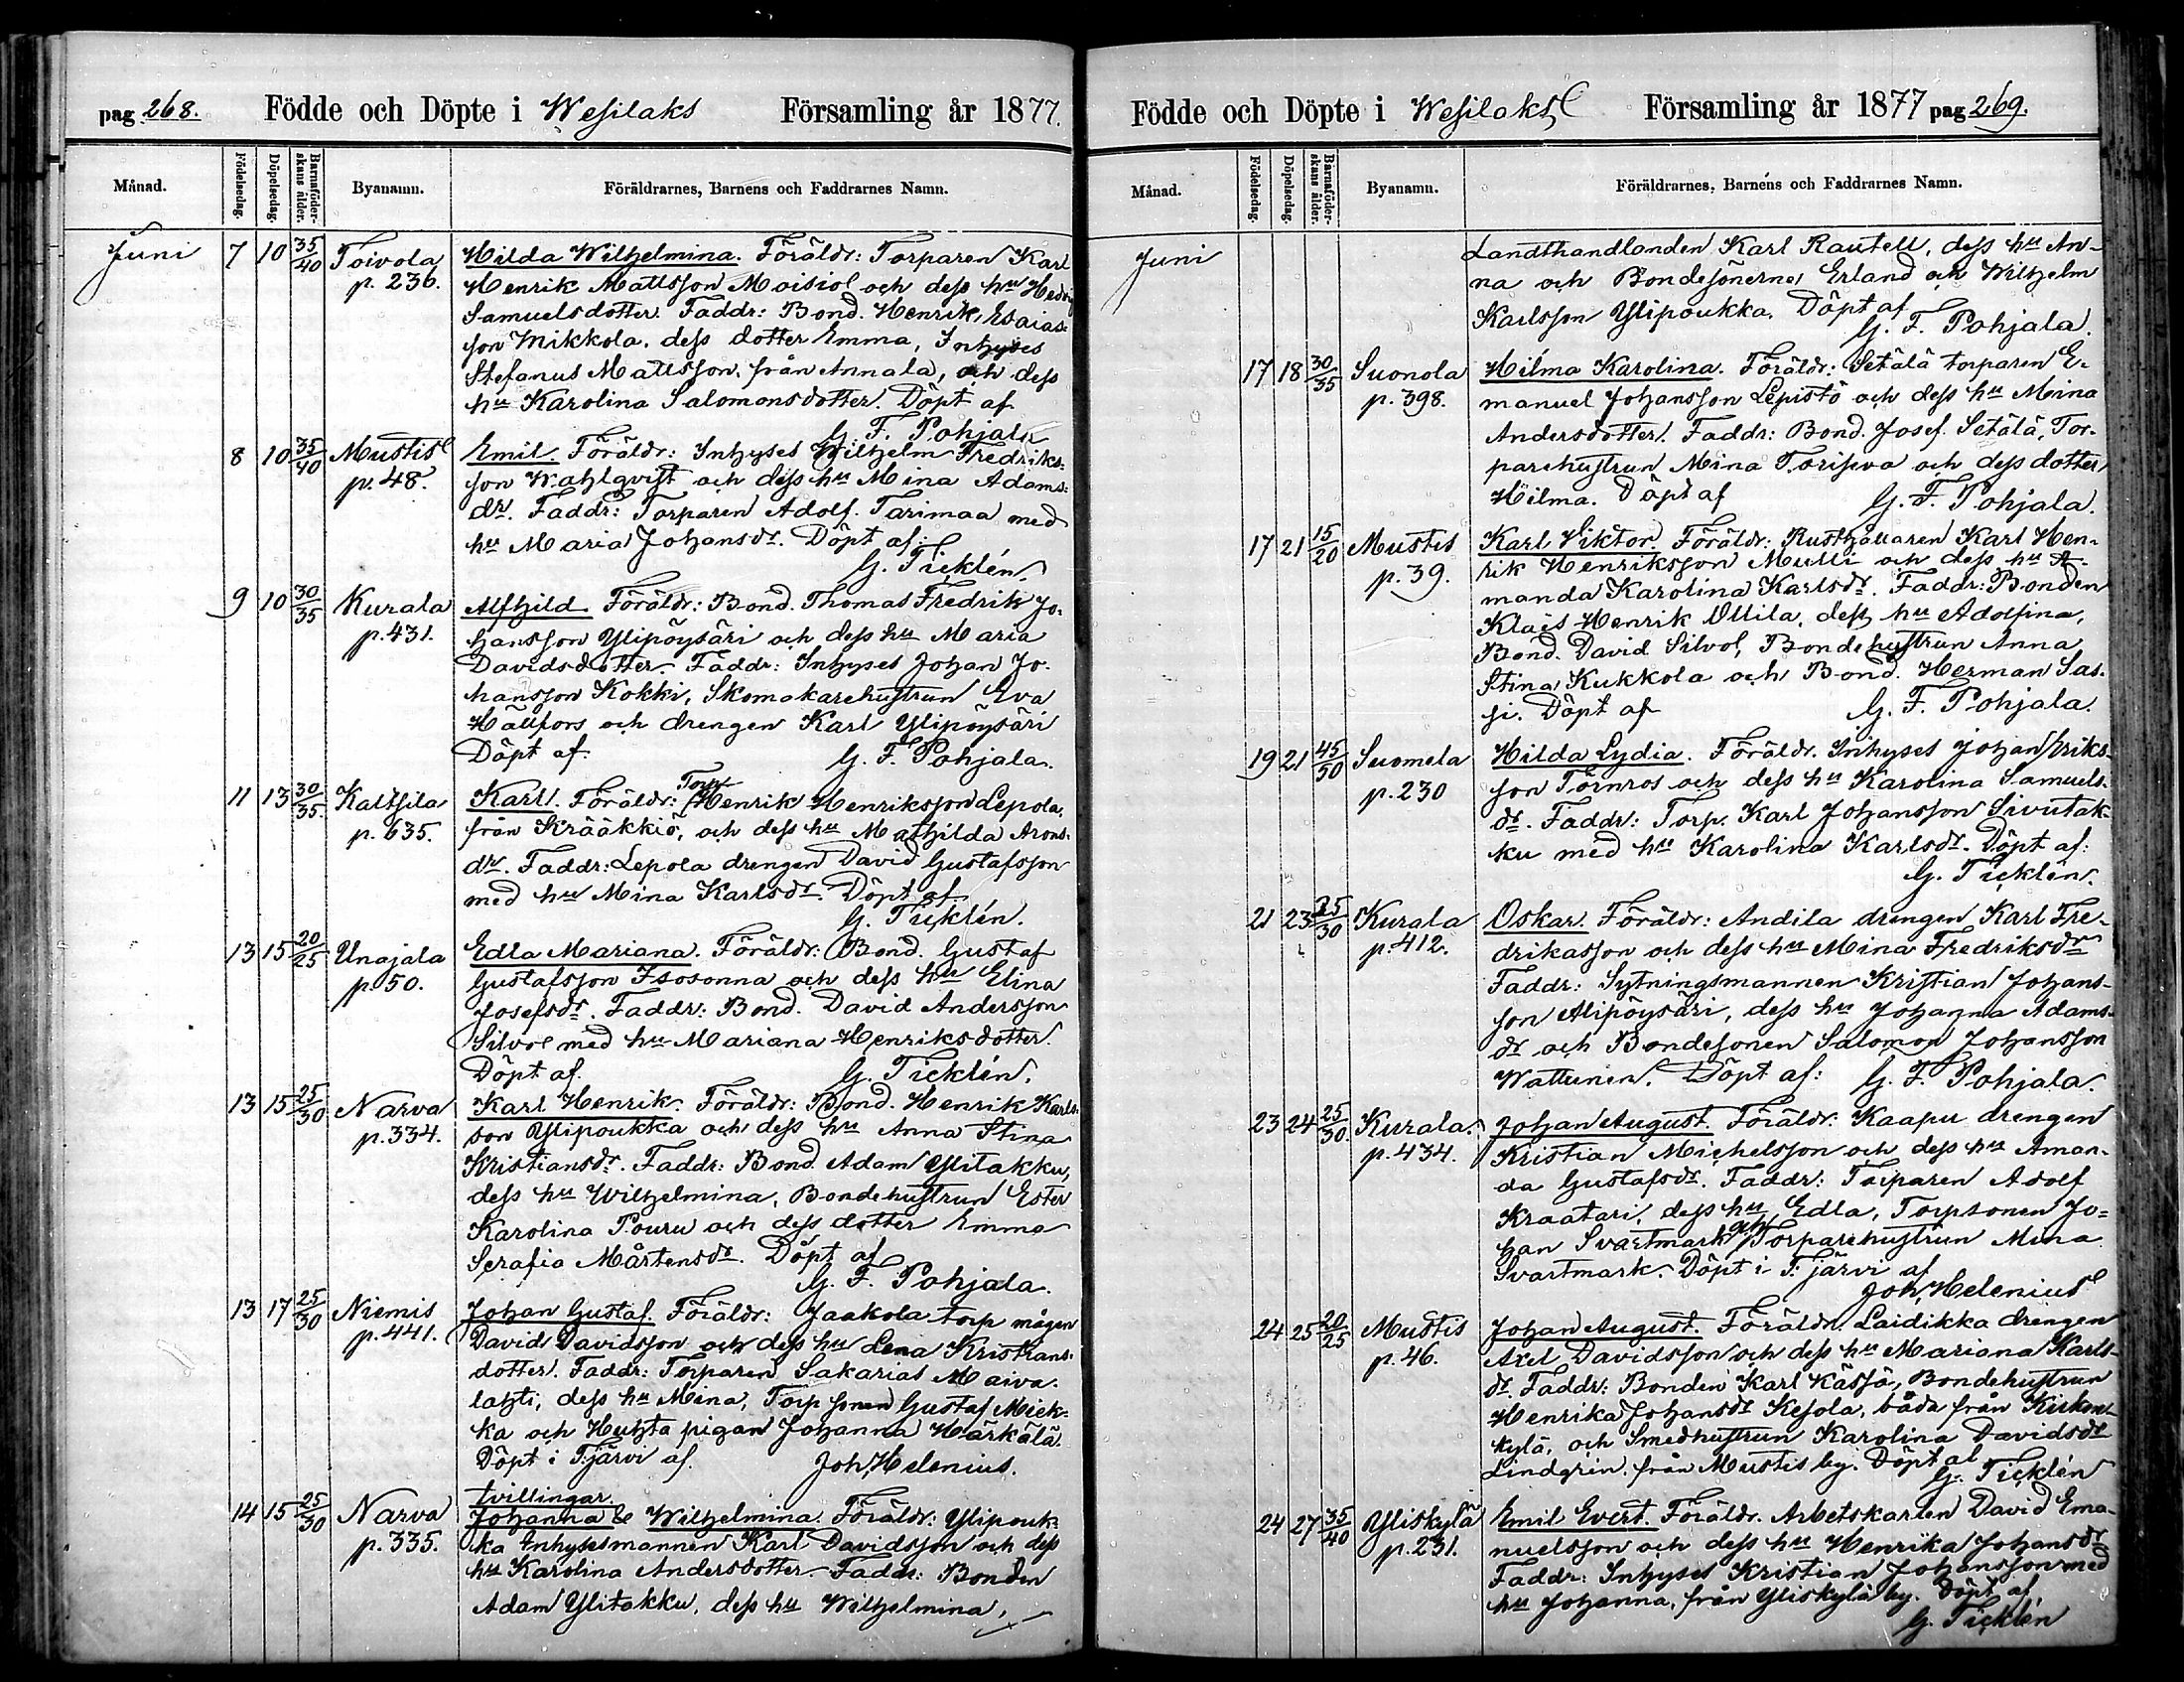 pag 268. Födde och Döpte i Wesilaks Församling år 1877.
Månad. Födelsedag. Döpelsedag. Barnaföderskans ålder. Byanamn. Föräldrarnes, Barnens och Faddrarnes Namn.
Juni 7 10 35/40 Toivola Hilda Wilhelmina. Föräldr: Torparen Karl
p. 236. Henrik Mattsson Moisiol och dess hu Hedvig
Samuelsdotter. Faddr: Bond. Henrik Esaias-
son Mikkola, dess dotter Emma, Inhyses
Stefanus Mattsson, från Annala, och dess
hu Karolina Salomonsdotter. Döpt af
G. F. Pohjala
8 10 35/40 Mustis Emil. Föräldr: Inhyses Wilhelm Fredriks-
p. 48. son Wahlqvist och dess hu Mina Adams-
dr. Faddr: Torparen Adolf Tarimaa med
hu Maria Johansdr. Döpt af:
G. Ticklén.
9 10 30/35 Kurala Alfhild Föräldr: Bond. Thomas Fredrik Jo-
p. 431. hansson Ylipöysäri och dess hu Maria
Davidsdotter. Faddr: Inhyses Johan Jo-
hansson Kokki, Skomakarehustrun Eva
Hällfors och drengen Karl Ylipöysäri
Döpt af. G. F. Pohjala.
11 13 30/35. Kaltsila Karl. Föräldr: Torp Henrik Henriksson Lepola,
p. 635. från Krääkkiö, och dess hu Mathilda Arons-
dr. Faddr: Lepola drengen David Gustafsson
med hu Mina Karlsdr. Döpt af
G. Ticklén.
13 15 20/25 Unajala Edla Mariana. Föräldr: Bond. Gustaf
p. 50. Gustafsson Isosonna och dess hu Elina
Josefsdr. Faddr: Bond. David Andersson
Silvol med hu Mariana Henriksdotter.
Döpt af. G. Ticklén.
13 15 25/30 Narva Karl Henrik. Föräldr: Bond. Henrik Karls-
p. 334. son Ylipoukka och dess hu Anna Stina
Kristiansdr. Faddr: Bond. Adam Ylitakku,
dess hu Wilhelmina, Bondehustrun Ester
Karolina Pouru och dess dotter Emma
Serafia Mårtensdr. Döpt af
G. F. Pohjala.
13 17 25/30 Niemis Johan Gustaf. Föräldr: Jaakola torp mågen
p. 441. David Davidsson och dess hu Lena Kristians-
dotter. Faddr: Torparen Sakarias Maiva-
lahti, dess hu Mina, Torp sonen Gustaf Miek-
ka och Huhta pigan Johanna Härkälä.
Döpt i T.järvi af. Joh. Helenius.
tvillingar.
14 15 25/30 Narva Johanna & Wilhelmina. Föräldr: Ylipouk-
p. 335. ka Inhysesmannen Karl Davidsson och dess
hu Karolina Andersdotter. Faddr: Bonden
Adam Ylitakku, dess hu Wilhelmina,
Födde och Döpte i Wesilaks Församling år 1877 pag 269.
Månad. Födelsedag. Döpelsedag. Barnaföderskans ålder. Byanamn. Föräldrarnes, Barnens och Faddrarnes Namn.
Juni Landthandlanden Karl Rautell, dess hu An-
na och Bondesönerna Erland och Wilhelm
Karlsson Ylipoukka. Döpt af
G. F. Pohjala.
17 18 30/35 Suonola Hilma Karolina. Föräldr: Setälä torparen E-
p. 398. manuel Johansson Lepistö och dess hu Mina
Andersdotter. Faddr: Bond. Josef Setälä, Tor-
parehustrun Mina Toriseva och dess dotter
Hilma. Döpt af G. F. Pohjala.
17 21 15/20 Mustis Karl Viktor Föräldr: Rusthållaren Karl Hen-
p. 39. rik Henriksson Mulli och dess hu A-
manda Karolina Karlsdr. Faddr: Bonden
Klais Henrik Ollila, dess hu Adolfina,
Bond. David Silvol, Bondehustrun Anna
Stina Kukkola och Bond. Herman Sas-
si. Döpt af G. F. Pohjala.
19 21 45/50 Suomela Hilda Lydia. Föräldr. Inhyses Johan Eriks-
p. 230 son Törnros och dess hu Karolina Samuels-
dr. Faddr: Torp. Karl Johansson Sivutak-
ku med hu Karolina Karlsdr. Döpt af:
G. Ticklén.
21 23 25/30 Kurala Oskar. Föräldr: Andila drengen Karl Fre-
p. 412. drikasson och dess hu Mina Fredriksdr
Faddr: Sytningsmannen Kristian Johans-
son Alipöysäri, dess hu Johanna Adams-
dr och Bondesonen Salomon Johansson
Wattunen. Döpt af: G. F. Pohjala.
23 24 25/30 Kurala. Johan August. Föräldr: Kaapu drengen
p. 434. Kristian Michelsson och dess hu Aman-
da Gustafsdr. Faddr: Torparen Adolf
Kraatari, dess hu Edla, Torpsonen Jo-
han Svartmark och Torparehustrun Mina
Svartmark. Döpt i T.järvi af
Joh. Helenius
24 25 20/25 Mustis Johan August. Föräldr. Laidikka drengen
p. 46. Axel Davidsson och dess hu Mariana Karls-
dr. Faddr: Bonden Karl Kässä, Bondehustrun
Henrika Johansdr Kesola, båda från Kirkon-
kylä, och Smedhustrun Karolina Davidsdr
Lindgrin från Mustis by. Döpt af
G. Ticklén
24 27 35/40 Yliskylä Emil Evert. Föräldr. Arbetskarlen David Ema-
p. 231. nuelsson och dess hu Henrika Johansdr
Faddr: Inhyses Kristian Johansson med
hu Johanna, från Yliskylä by. Döpt af
G. Ticklén